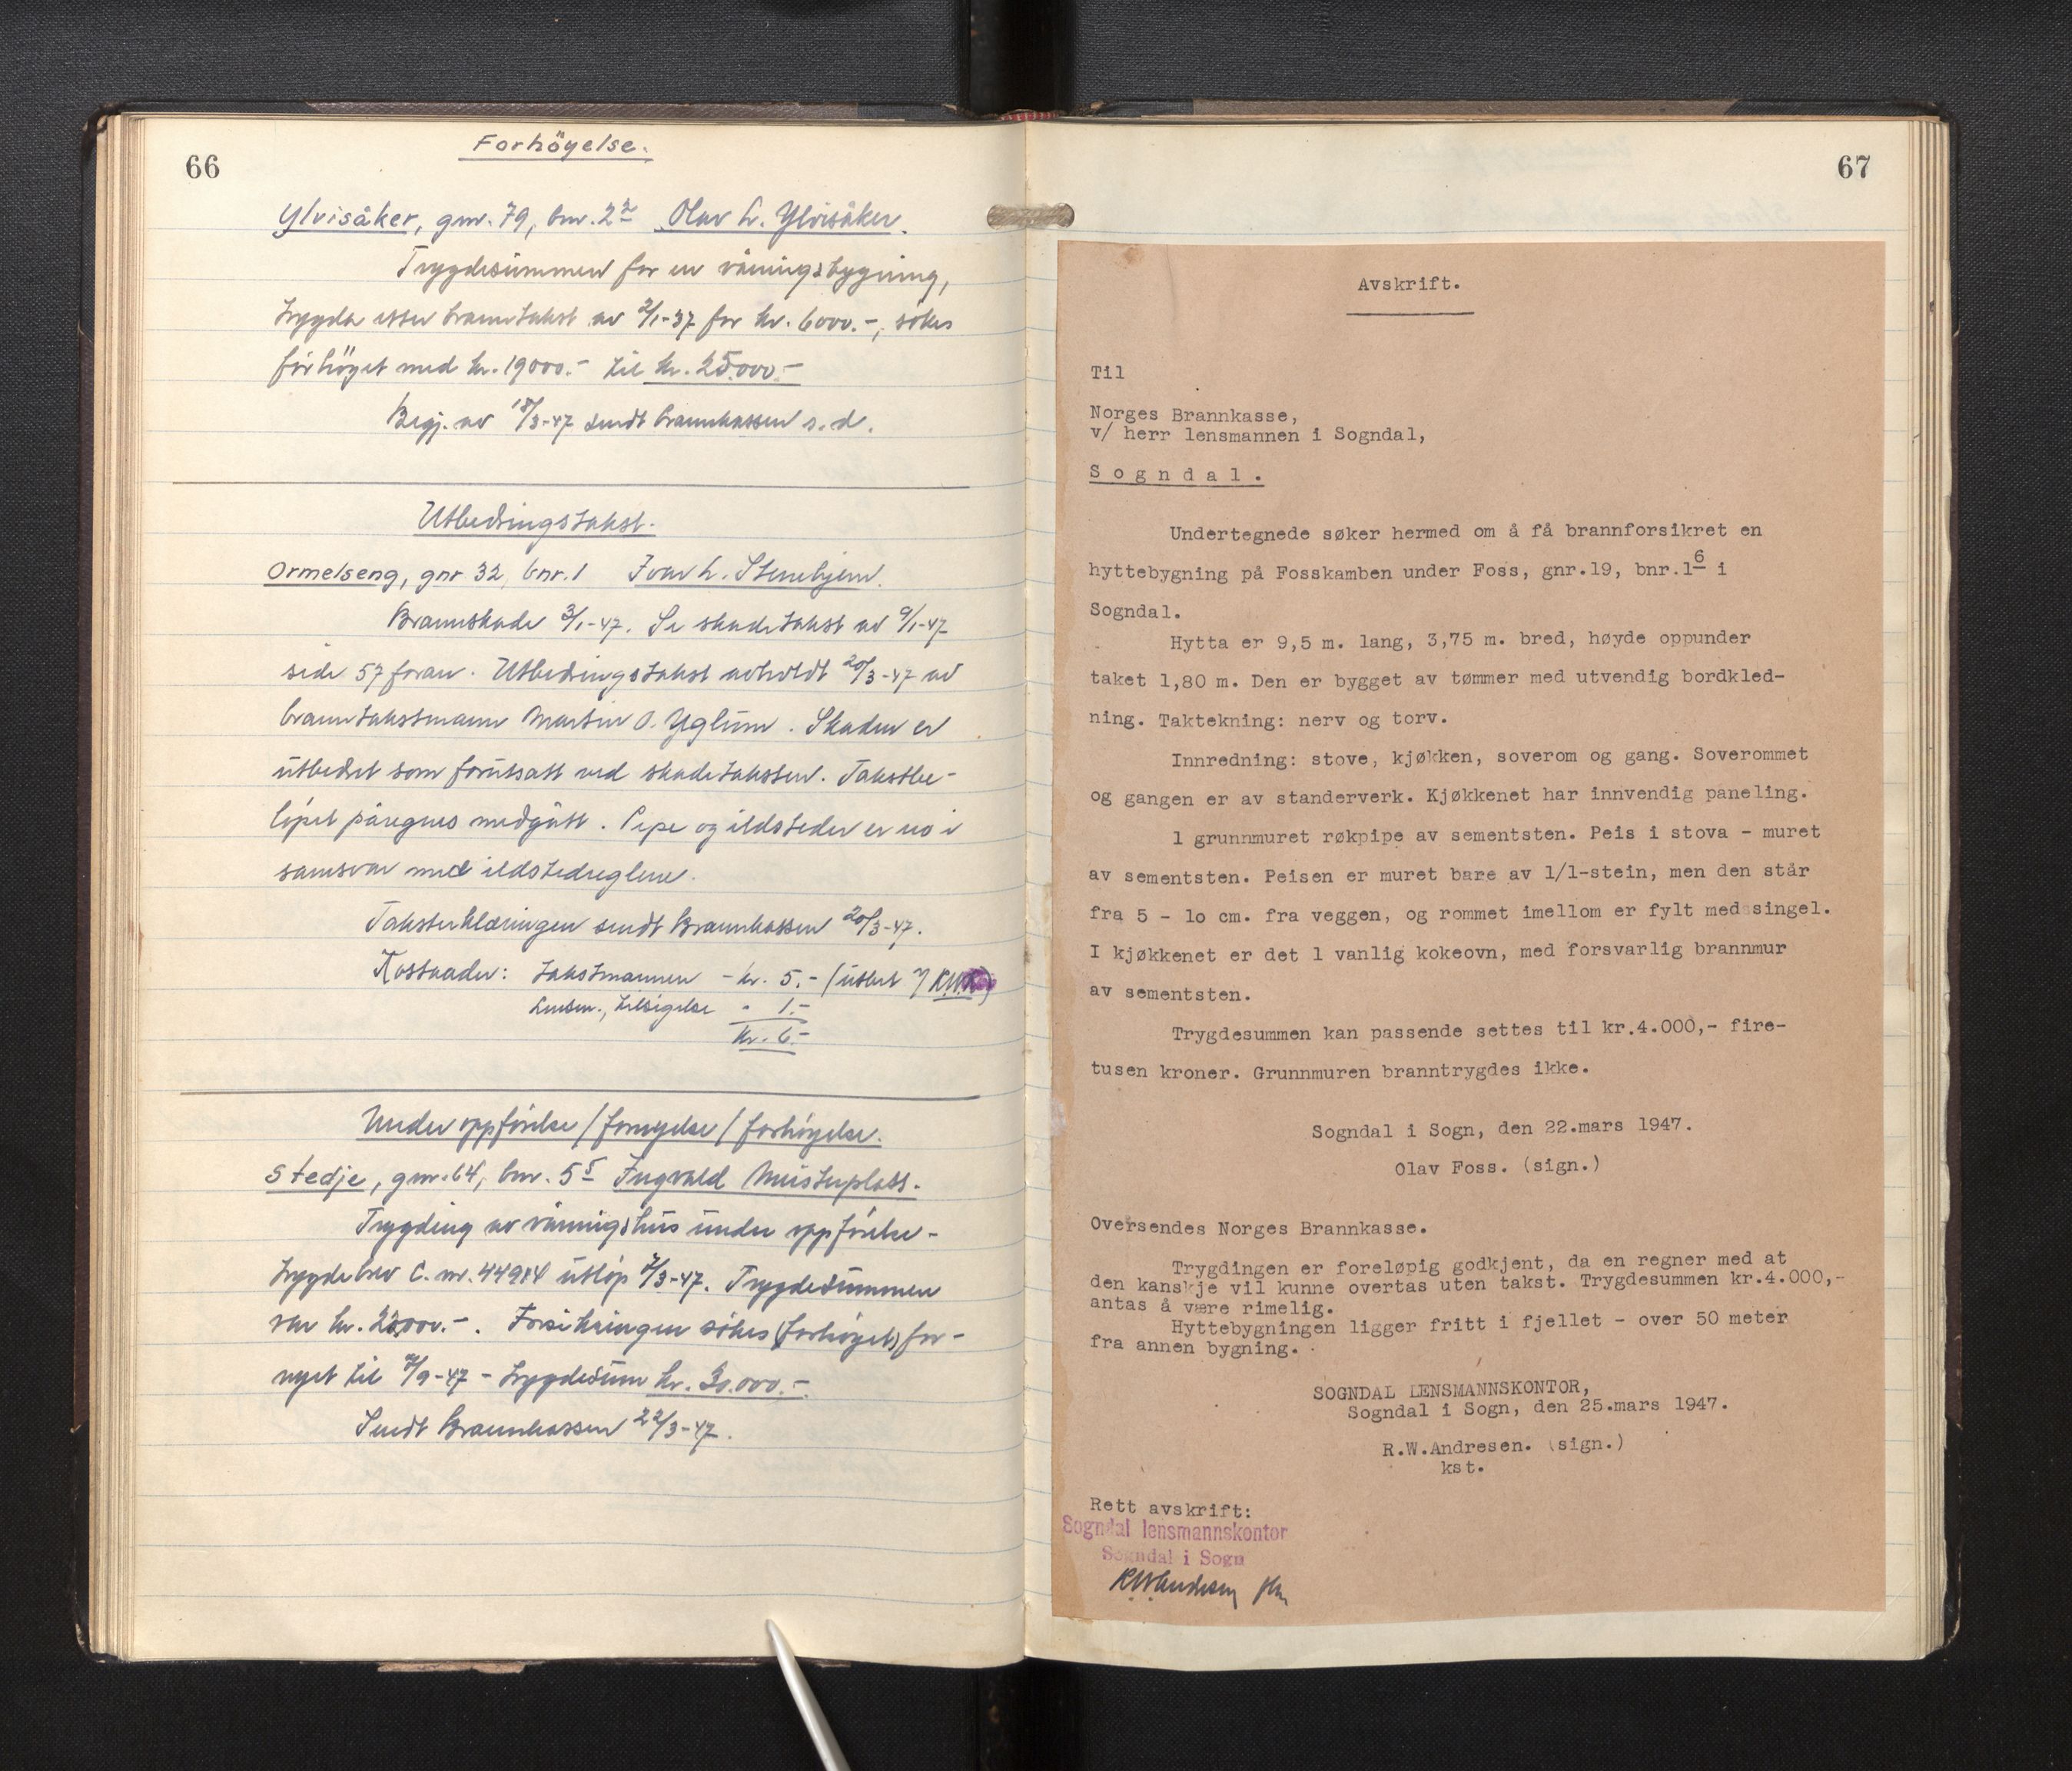 66
Forhöyelse.
Ylvisåker, gnr. 79, bnr. 2² Olav L. Ylvisåker.
Trygdesummen for en våningsbygning,
trygda etter branntakst av 2/1-37 for kr. 6000.-, søkes
forhöyet med kr. 19000.- til kr. 25.000.-
Begj. av 18/3-47 sendt brannkassen s.d.
Utbedringstakst.
Ormelseng, gnr 32, bnr. 1 Ivar L. Stenehjem.
Brannskade 3/1-47. Se skadetakst av 9/1-47
side 57 foran. Utbedringstakst avholdt 20/3-47 av
branntakstmann Martin O. Yglum. Skaden er
utbedret som forutsatt ved skadetaksten. Takstbe-
løpet påregnes medgått. Pipe og ildsteder er no i
samsvar med ildstedreglene.
Taksterklæringen sendt Brannkassen 20/3-47.
Kostnader: takstmannen - kr. 5.- (utbet.
Lensm., tilsigelse " 1.-
kr. 6.-
Under oppførelse/fornyelse/forhøyelse.
Stedje, gnr. 64, bnr. 5⁵ Ingvald Meisterplass.
Trygding av våningshus under oppførelse -
trygdebrev C. nr. 44914 utløp 7/3-47. Trygdesummen
var kr. 20,000.-. Forsikringen søkes (forhøyet) for-
nyet til 7/9-47 - trygdesum kr. 30.000.-
Sendt Brannkassen 22/3-47.
67
Avskrift.
Til
Norges Brannkasse,
v/ herr lensmannen i Sogndal,
S o g n d a l .
Undertegnede søker hermed om å få brannforsikret en
hyttebygning på Fosskamben under Foss, gnr.19, bnr.1⁶ i
Sogndal.
Hytta er 9,5 m. lang, 3,75 m. bred, høyde oppunder
taket 1,80 m. Den er bygget av tømmer med utvendig bordkled-
ning. Taktekning: nerv og torv.
Innredning: stove, kjøkken, soverom og gang. Soverommet
og gangen er av standerverk. Kjøkkenet har innvendig paneling.
1 grunnmuret røkpipe av sementsten. Peis i stova - muret
av sementsten. Peisen er muret bare av 1/1-stein, men den står
fra 5 - lo cm. fra veggen, og rommet imellom er fylt med singel.
I kjøkkenet er det 1 vanlig kokeovn, med forsvarlig brannmur
av sementsten.
Trygdesummen kan passende settes til kr.4.000,- fire-
tusen kroner. Grunnmuren branntrygdes ikke.
Sogndal i Sogn, den 22.mars 1947.
Olav Foss. (sign.)
Oversendes Norges Brannkasse.
Trygdingen er foreløpig godkjent, da en regner med at
den kanskje vil kunne overtas uten takst. Trygdesummen kr.4.000,-
antas å være rimelig.
Hyttebygningen ligger fritt i fjellet - over 50 meter
fra annen bygning.
SOGNDAL LENSMANNSKONTOR,
Sogndal i Sogn, den 25.mars 1947.
R.W.Andresen. (sign.)
kst.
Rett avskrift:
Sogndal lensmannskontor
Sogndal i Sogn
RWAndresen